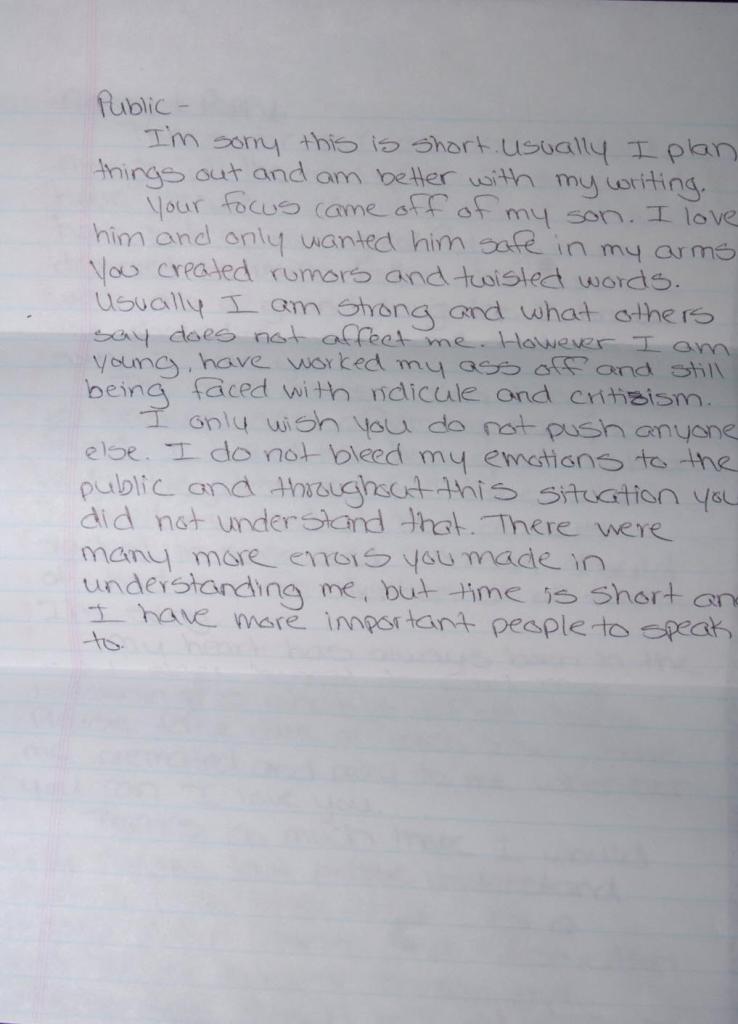 Public -
I'm sorry this is short. Usually I plan
things out and am better with my writing.
Your focus came off of my son. I love
him and only wanted him safe in my arms
You created rumors and twisted words.
Usually I am strong and what others
say does not affect me. However I am
young, have worked my ass off and still
being faced with ridicule and critisism.
I only wish you do not push anyone
else. I do not bleed my emotions to the
public and throughout this situation you
did not understand that. There were
many more errors you made in
understanding me, but time is short an
I have more important people to speak
to.